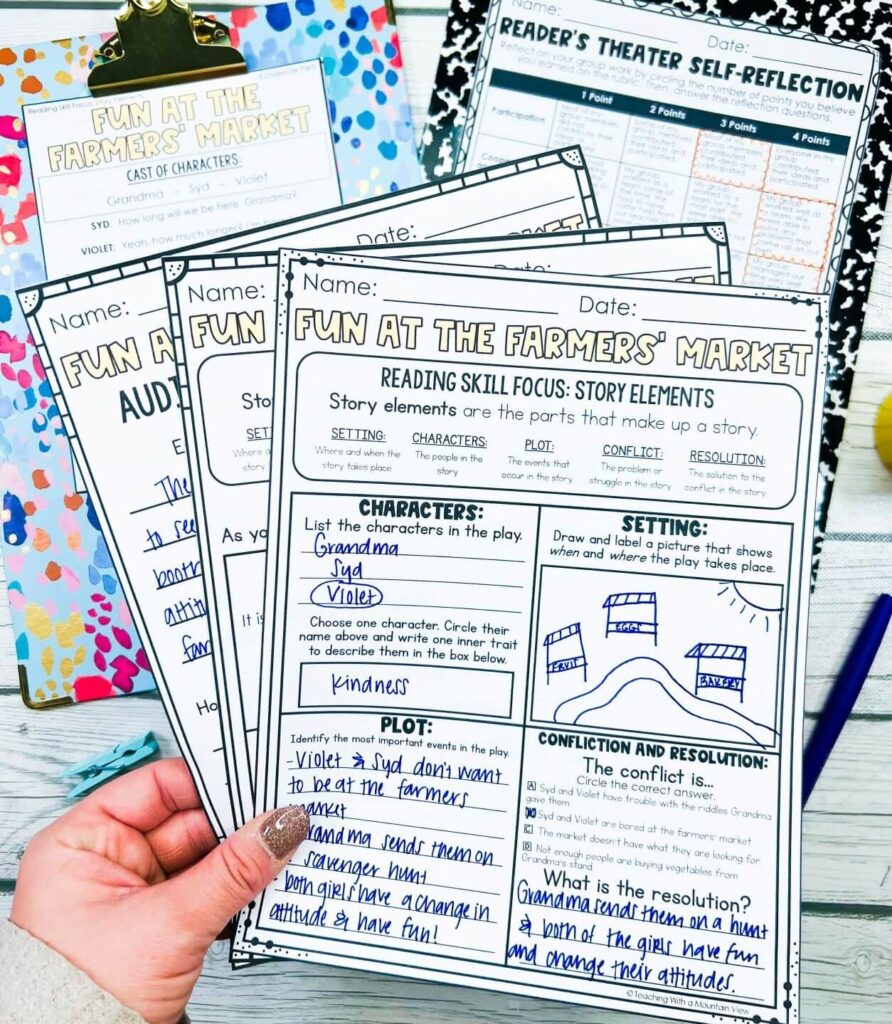 Reading Skill Focus: Story Elements
3 Character Parts
FUN AT THE
FARMERS' MARKET
CAST OF CHARACTERS:
Grandma - Syd - Violet
SYD: How long will we be here, Grandma?
VIOLET: Yeah, how much longer?
Name:
Date:
READER'S THEATER SELF-REFLECTION
Reflect on your group work by circling the number of points you believe
you earned on the rubric. Then, answer the reflection questions.
1 Point
2 Points
3 Points
4 Points
Participation
contributed
their ideas and
participated.
Name:
Date:
FUN A
AUDI
The
to see
booth
attit
far
Ho
Name:
Date:
FUN
Sto
SET
Where a
story
As yo
It is
Name:
Date:
FUN AT THE FARMERS' MARKET
READING SKILL FOCUS: STORY ELEMENTS
Story elements are the parts that make up a story.
SETTING:
Where and when the
story takes place
CHARACTERS:
The people in the
story
PLOT:
The events that
occur in the story
CONFLICT:
The problem or
struggle in the story
RESOLUTION:
The solution to the
conflict in the story
CHARACTERS:
List the characters in the play.
Grandma
Syd
Violet
Choose one character. Circle their
name above and write one inner trait
to describe them in the box below.
Kindness
SETTING:
Draw and label a picture that shows
when and where the play takes place.
FRUIT
EGGS
BAKERY
PLOT:
Identify the most important events in the play.
-Violet & Syd don't want
to be at the farmers
market
Grandma sends them on
scavenger hunt
both girls have a change in
attitude & have fun!
CONFLICTION AND RESOLUTION:
The conflict is...
Circle the correct answer.
A Syd and Violet have trouble with the riddles Grandma
gave them
B Syd and Violet are bored at the farmers' market
C The market doesn't have what they are looking for
D Not enough people are buying vegetables from
Grandma's stand
What is the resolution?
Grandma sends them on a hunt
& both of the girls have fun
and change their attitudes.
©Teaching With a Mountain View